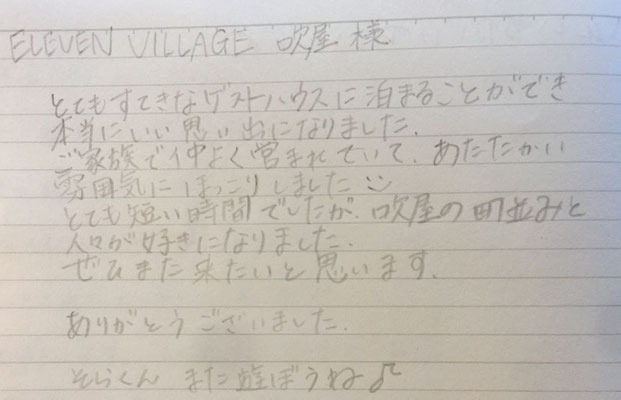 ELEVEN VILLAGE 吹屋 様
とてもすてきなゲストハウスに泊まることができ
本当にいい思い出になりました.
ご家族で仲よく営まれていて、あたたかい
雰囲気にほっこりしました☺
とても短い時間でしたが、吹屋の町並みと
人々が好きになりました.
ぜひまた来たいと思います.
ありがとうございました.
そらくん また遊ぼうね♪